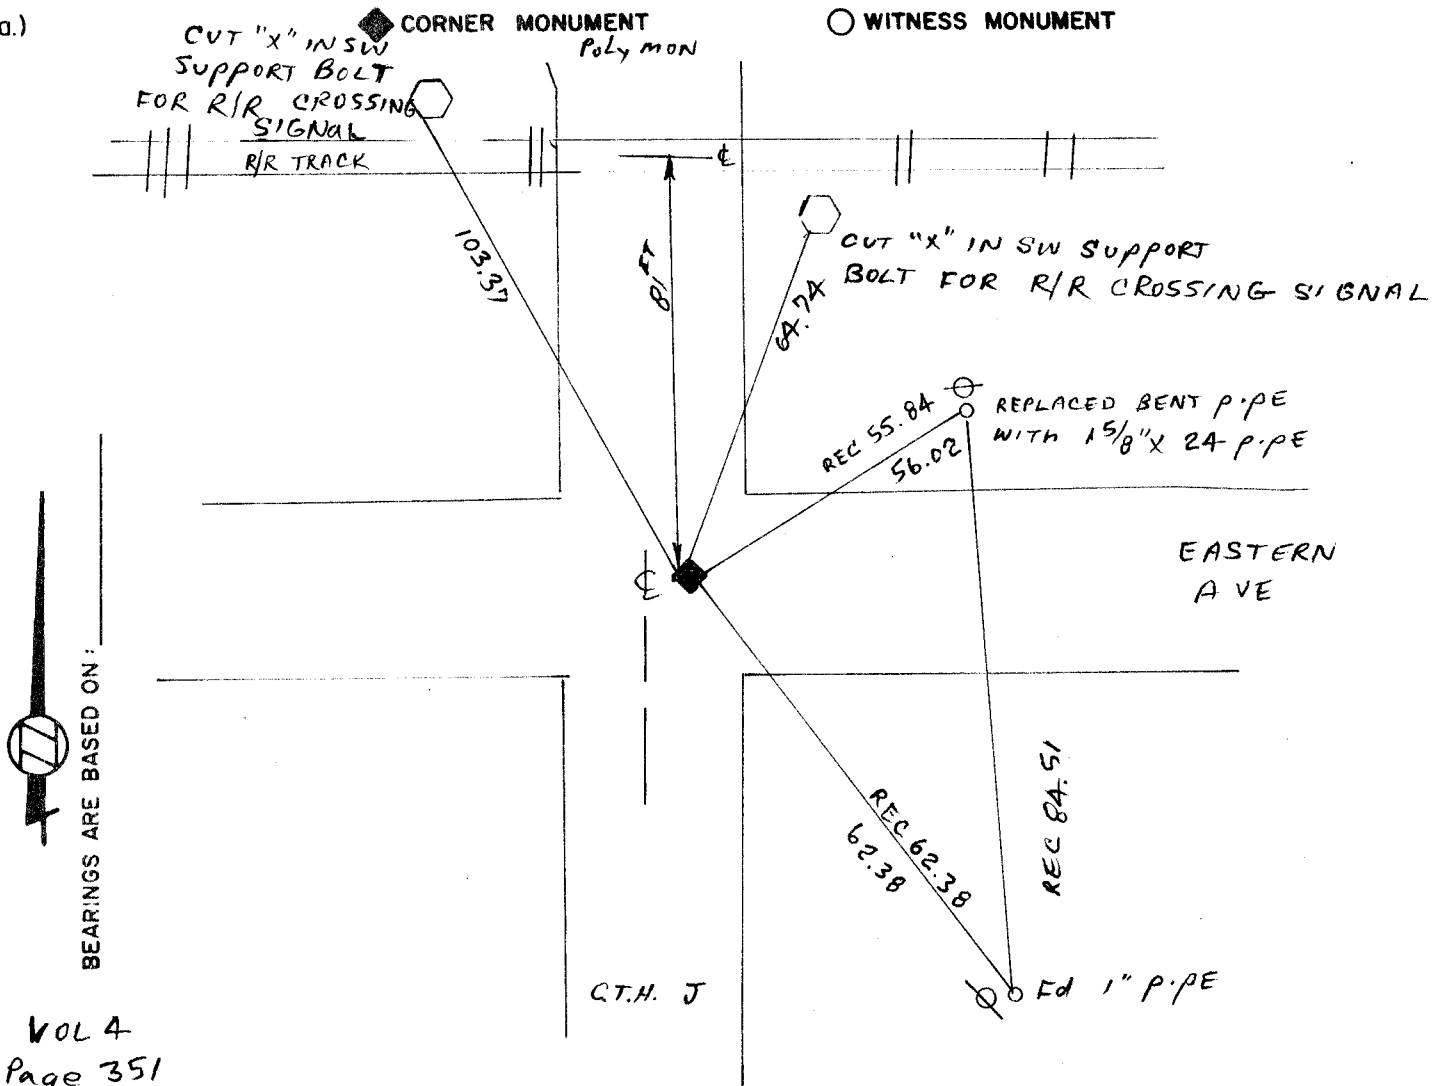 a.)
CORNER MONUMENT
WITNESS MONUMENT
Poly MON
CUT "X" IN SW
SUPPORT BOLT
FOR R/R CROSSING
SIGNAL
R/R TRACK
℄
103.37
81 FT
64.74
CUT "X" IN SW SUPPORT
BOLT FOR R/R CROSSING SIGNAL
REC 55.84
56.02
REPLACED BENT PIPE
WITH 1 5/8" X 24 PIPE
EASTERN
AVE
℄
BEARINGS ARE BASED ON:
REC 84.51
REC 62.38
62.38
C.T.H. J
Fd 1" PIPE
VOL 4
Page 351